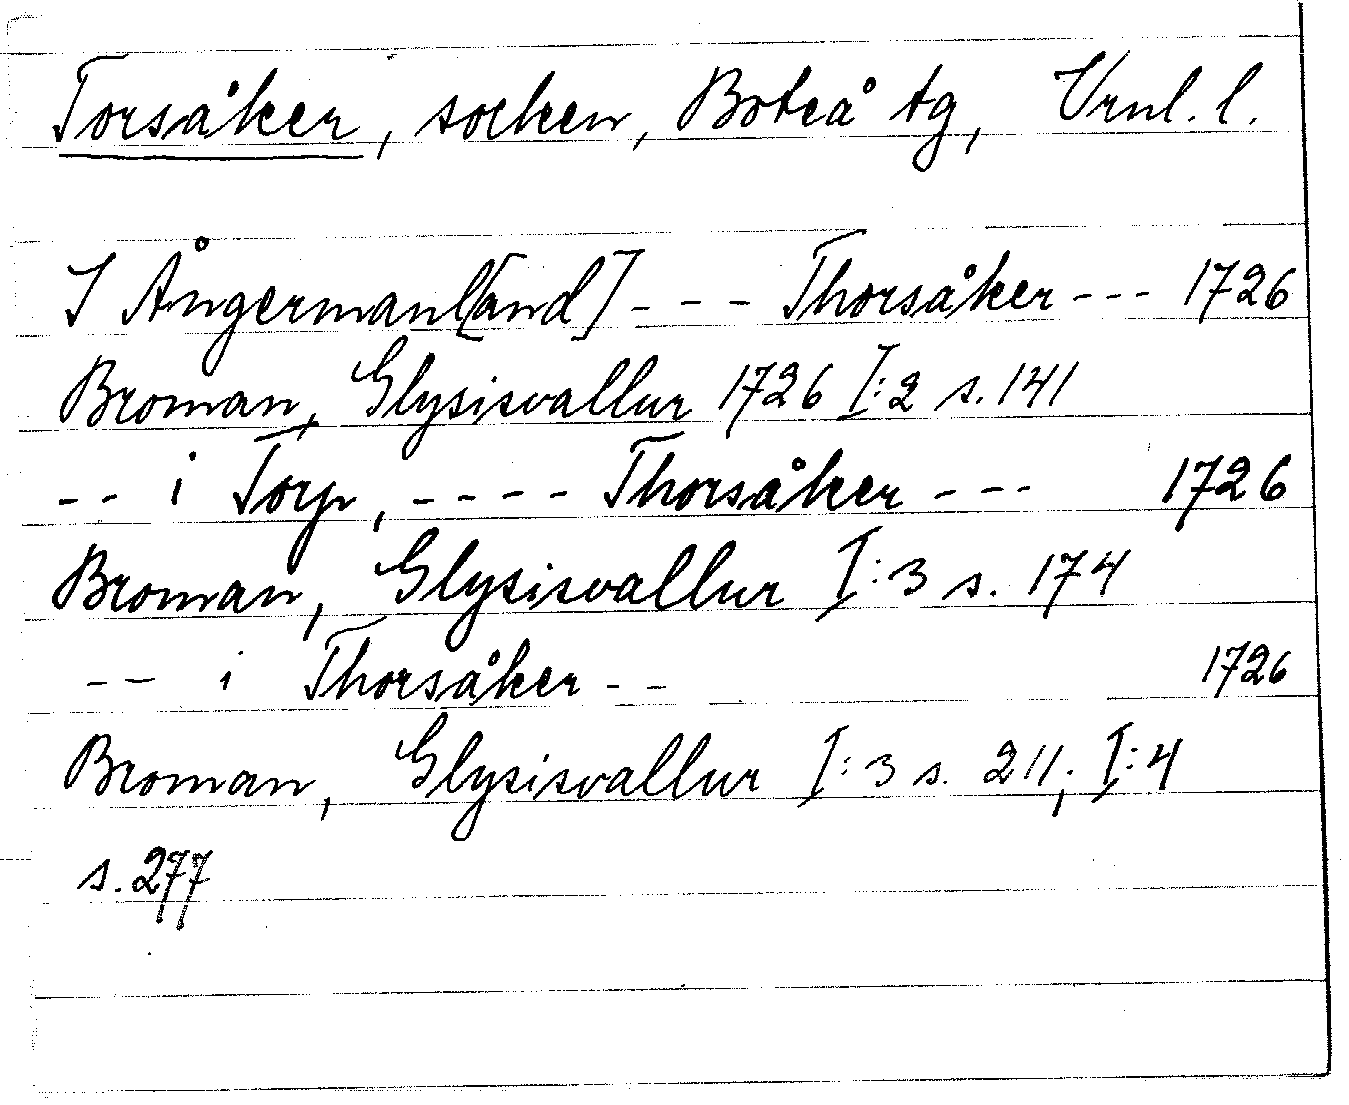 Torsåker, socken, Boteå tg, Vrnl. l.
I Ångermanl[and] - - - Thorsåker - - - 1726
Broman, Glysisvallur 1726 I:2 s. 141
- - i Torp, - - - - Thorsåker - - - 1726
Broman, Glysisvallur I:3 s. 174
- - i Thorsåker - - 1726
Broman, Glysisvallur I:3 s. 211; I:4
s. 277